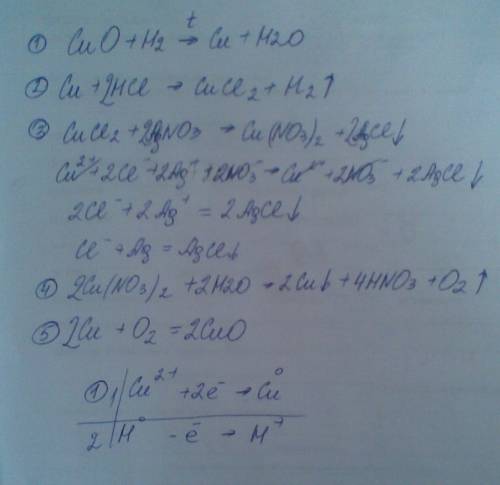 ① CuO + H2 →t Cu + H2O
② Cu + 2HCl → CuCl2 + H2↑
③ CuCl2 + 2AgNO3 → Cu(NO3)2 + 2AgCl↓
Cu²⁺ + 2Cl⁻ + 2Ag⁺ + 2NO3⁻ → Cu²⁺ + 2NO3⁻ + 2AgCl↓
2Cl⁻ + 2Ag⁺ = 2AgCl↓
Cl⁻ + Ag = AgCl↓
④ 2Cu(NO3)2 + 2H2O → 2Cu↓ + 4HNO3 + O2↑
⑤ 2Cu + O2 = 2CuO
① 1 | Cu²⁺ + 2e⁻ → Cu⁰
2 | H⁰ - e⁻ → H⁺